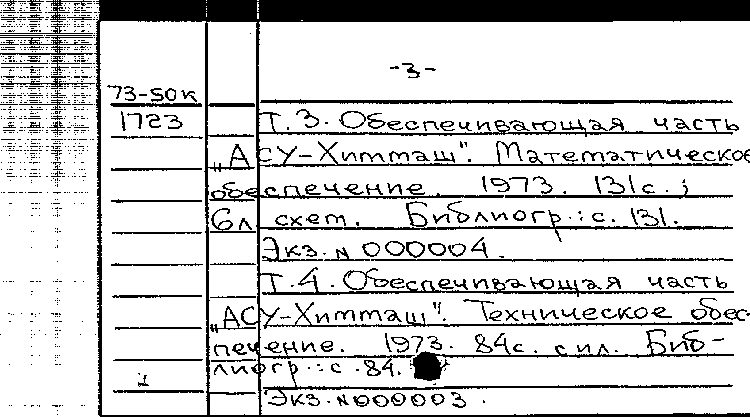 -3-
73-50к
1723
Т. 3. Обеспечивающая часть
„АСУ-Химмаш". Математическое
обеспечение. 1973. 131с.;
6л схем. Библиогр.: с. 131.
Экз. N 000004.
Т. 4. Обеспечивающая часть
„АСУ-Химмаш". Техническое обес-
печение. 1973. 84с. с ил. Биб-
лиогр.: с. 84.
Экз. N000003.